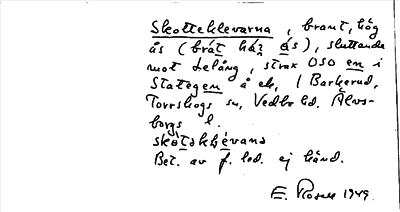 Skotteklevarna, brant, hög
ås (brat håg ås), sluttande
mot Delång, strax OSO en i
Stategen å ek, (Barkerud,
Torrskogs sn, Vedbo hd. Älvs-
borgs l.
skòtəkLévana
Bet. av f. led. ej känd.
E. Rosell 1949.